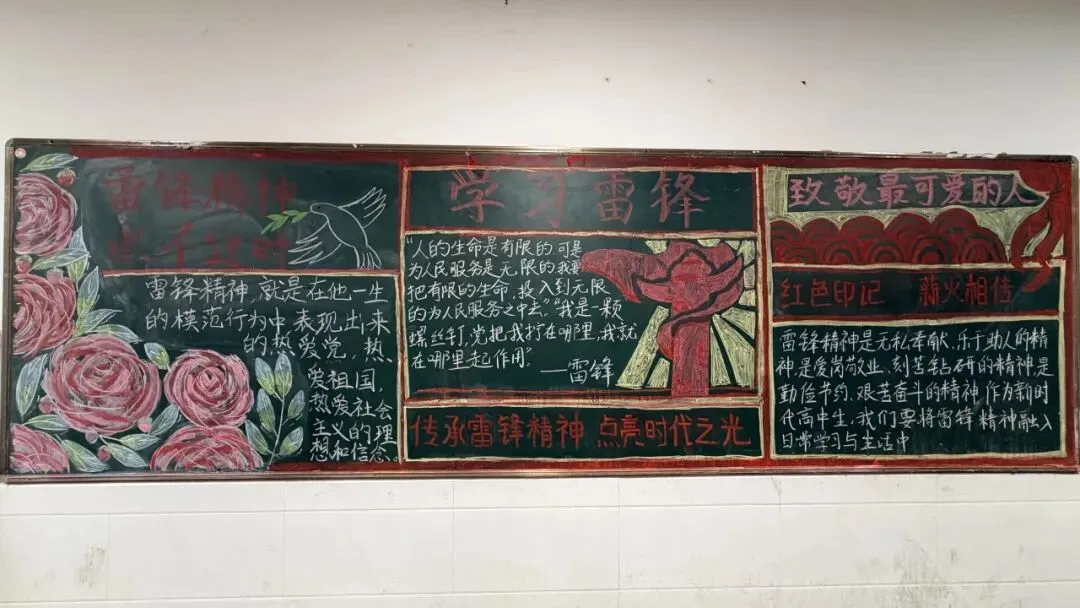 雷锋精神
永不过时
雷锋精神,就是在他一生
的模范行为中表现出来
的热爱党,热
爱祖国,
热爱社会
主义的理
想和信念。
学习雷锋
“人的生命是有限的可是
为人民服务是无限的我要
把有限的生命,投入到无限
的为人民服务之中去”“我是一颗
螺丝钉,党把我拧在哪里,我就
在哪里起作用”
——雷锋
传承雷锋精神 点亮时代之光
致敬最可爱的人
红色印记 薪火相传
雷锋精神是无私奉献、乐于助人的精
神是爱岗敬业、刻苦钻研的精神是
勤俭节约、艰苦奋斗的精神 作为新时
代高中生,我们要将雷锋精神融入
日常学习与生活中